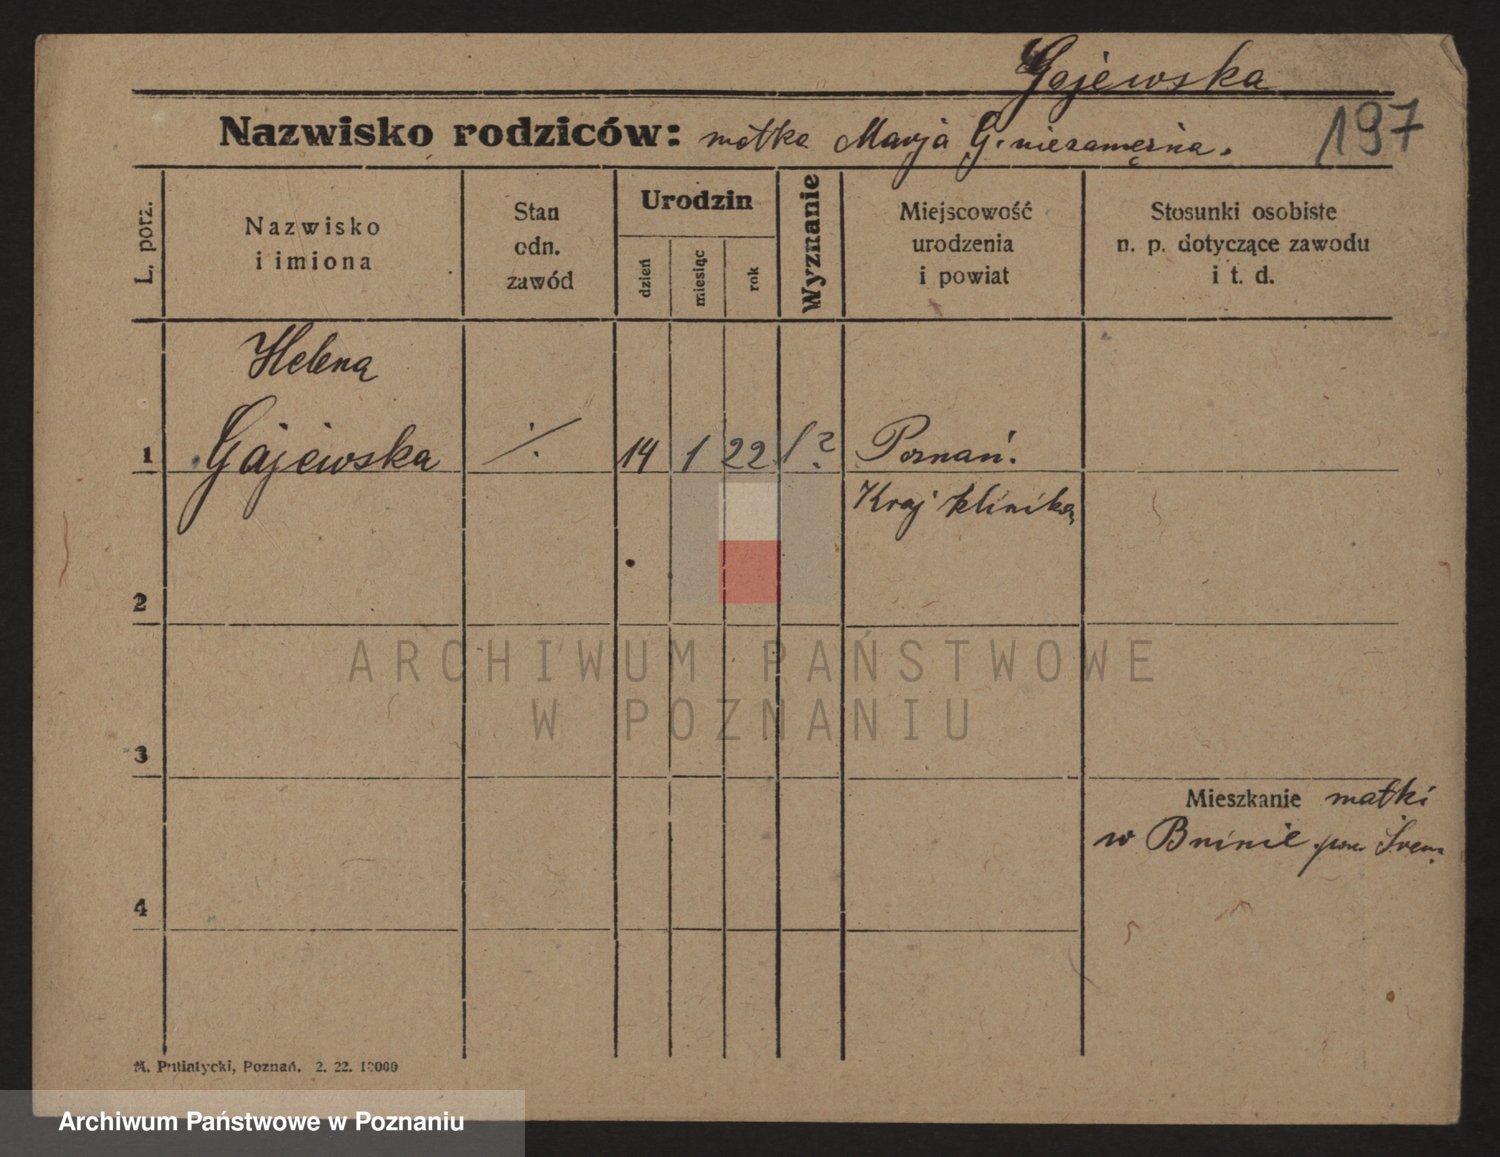 Gajewska
197
Nazwisko rodziców: matka Marja G. niezamężna.
L. porz.
Nazwisko
i imiona
Stan
odn.
zawód
Urodzin
dzień
miesiąc
rok
Wyznanie
Miejscowość
urodzenia
i powiat
Stosunki osobiste
n. p. dotyczące zawodu
i t. d.
Helena
1 Gajewska ./. 14 1 22 ? Poznań.
Kraj klinika
2
ARCHIWUM PAŃSTWOWE
W POZNANIU
3
Mieszkanie matki
w Bninie pow. Śrem
4
M. Putiatycki, Poznań. 2. 22. 10000
Archiwum Państwowe w Poznaniu